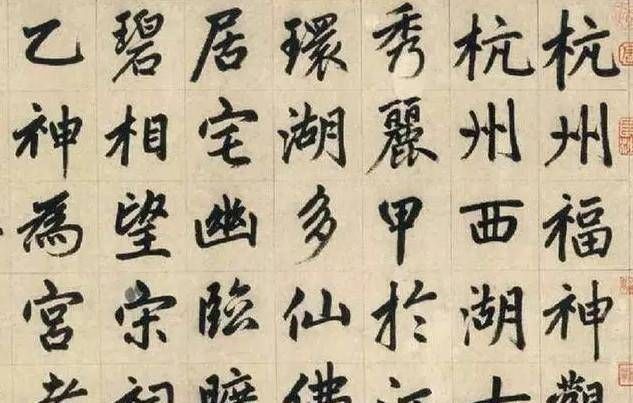 杭州福神觀
杭州西湖
秀麗甲於
環湖多仙佛
居宅幽臨曠
碧相望宋祠
乙神為宮